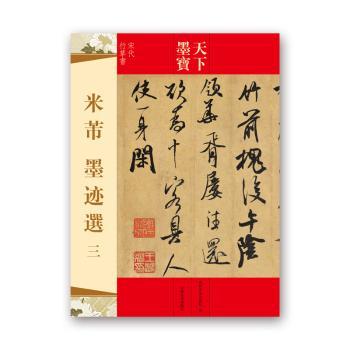 宋代
行草書
天下
墨寶
米芾 墨迹選 三
竹前槐後午陰
領華胥屢往還
欲為十客具人
使一身閑